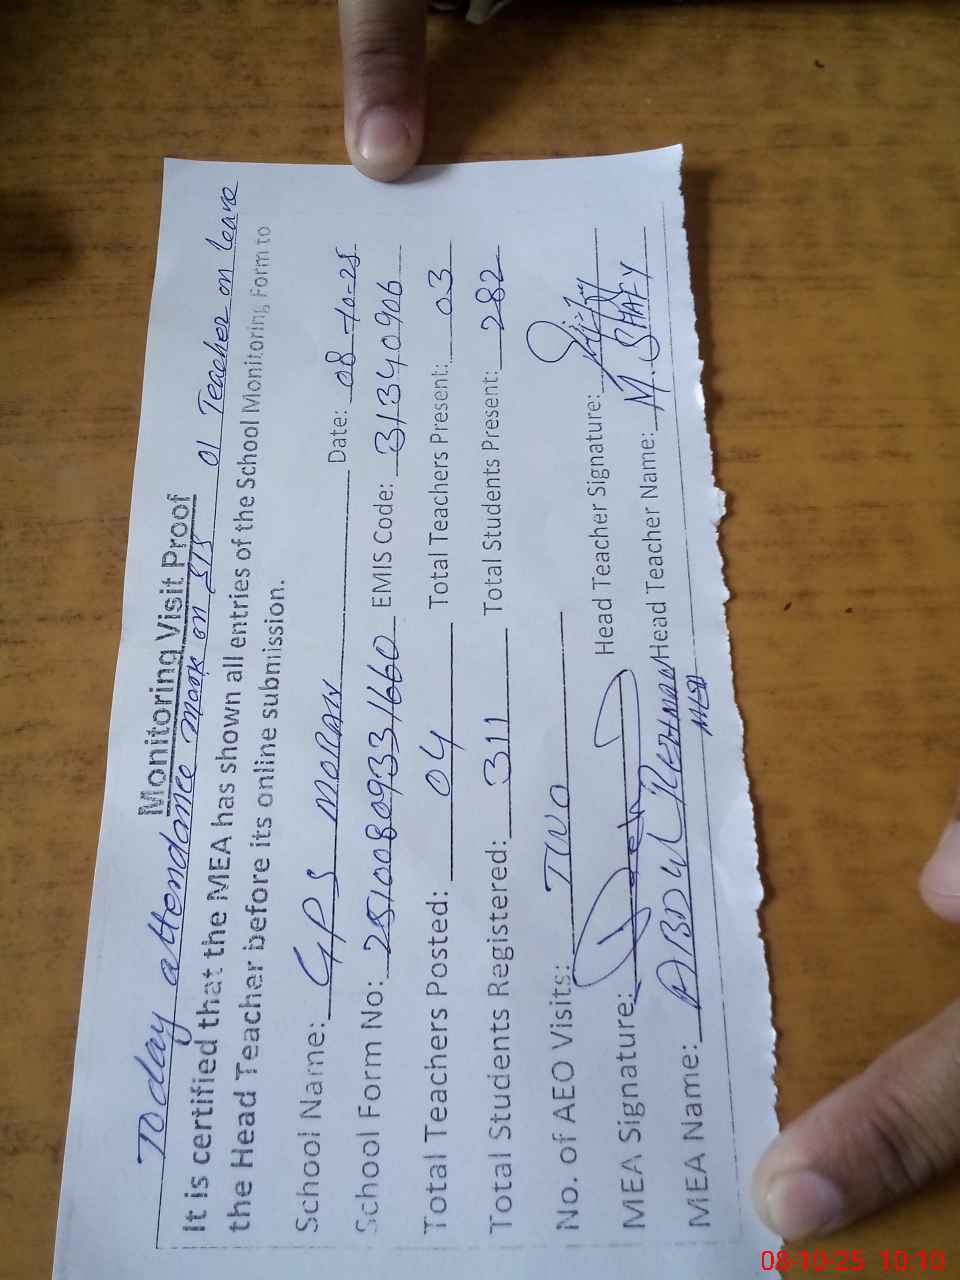 Monitoring Visit Proof
Today attendance mark on SIS 01 Teacher on leave
It is certified that the MEA has shown all entries of the School Monitoring Form to
the Head Teacher before its online submission.
School Name: GPS MORAN Date: 08-10-25
School Form No: 25100809331660 EMIS Code: 31340906
Total Teachers Posted: 04 Total Teachers Present: 03
Total Students Registered: 311 Total Students Present: 282
No. of AEO Visits: TWO
MEA Signature: Head Teacher Signature:
MEA Name: ABDUL REHMAN Head Teacher Name: M. SHAFY
08-10-25 10:10